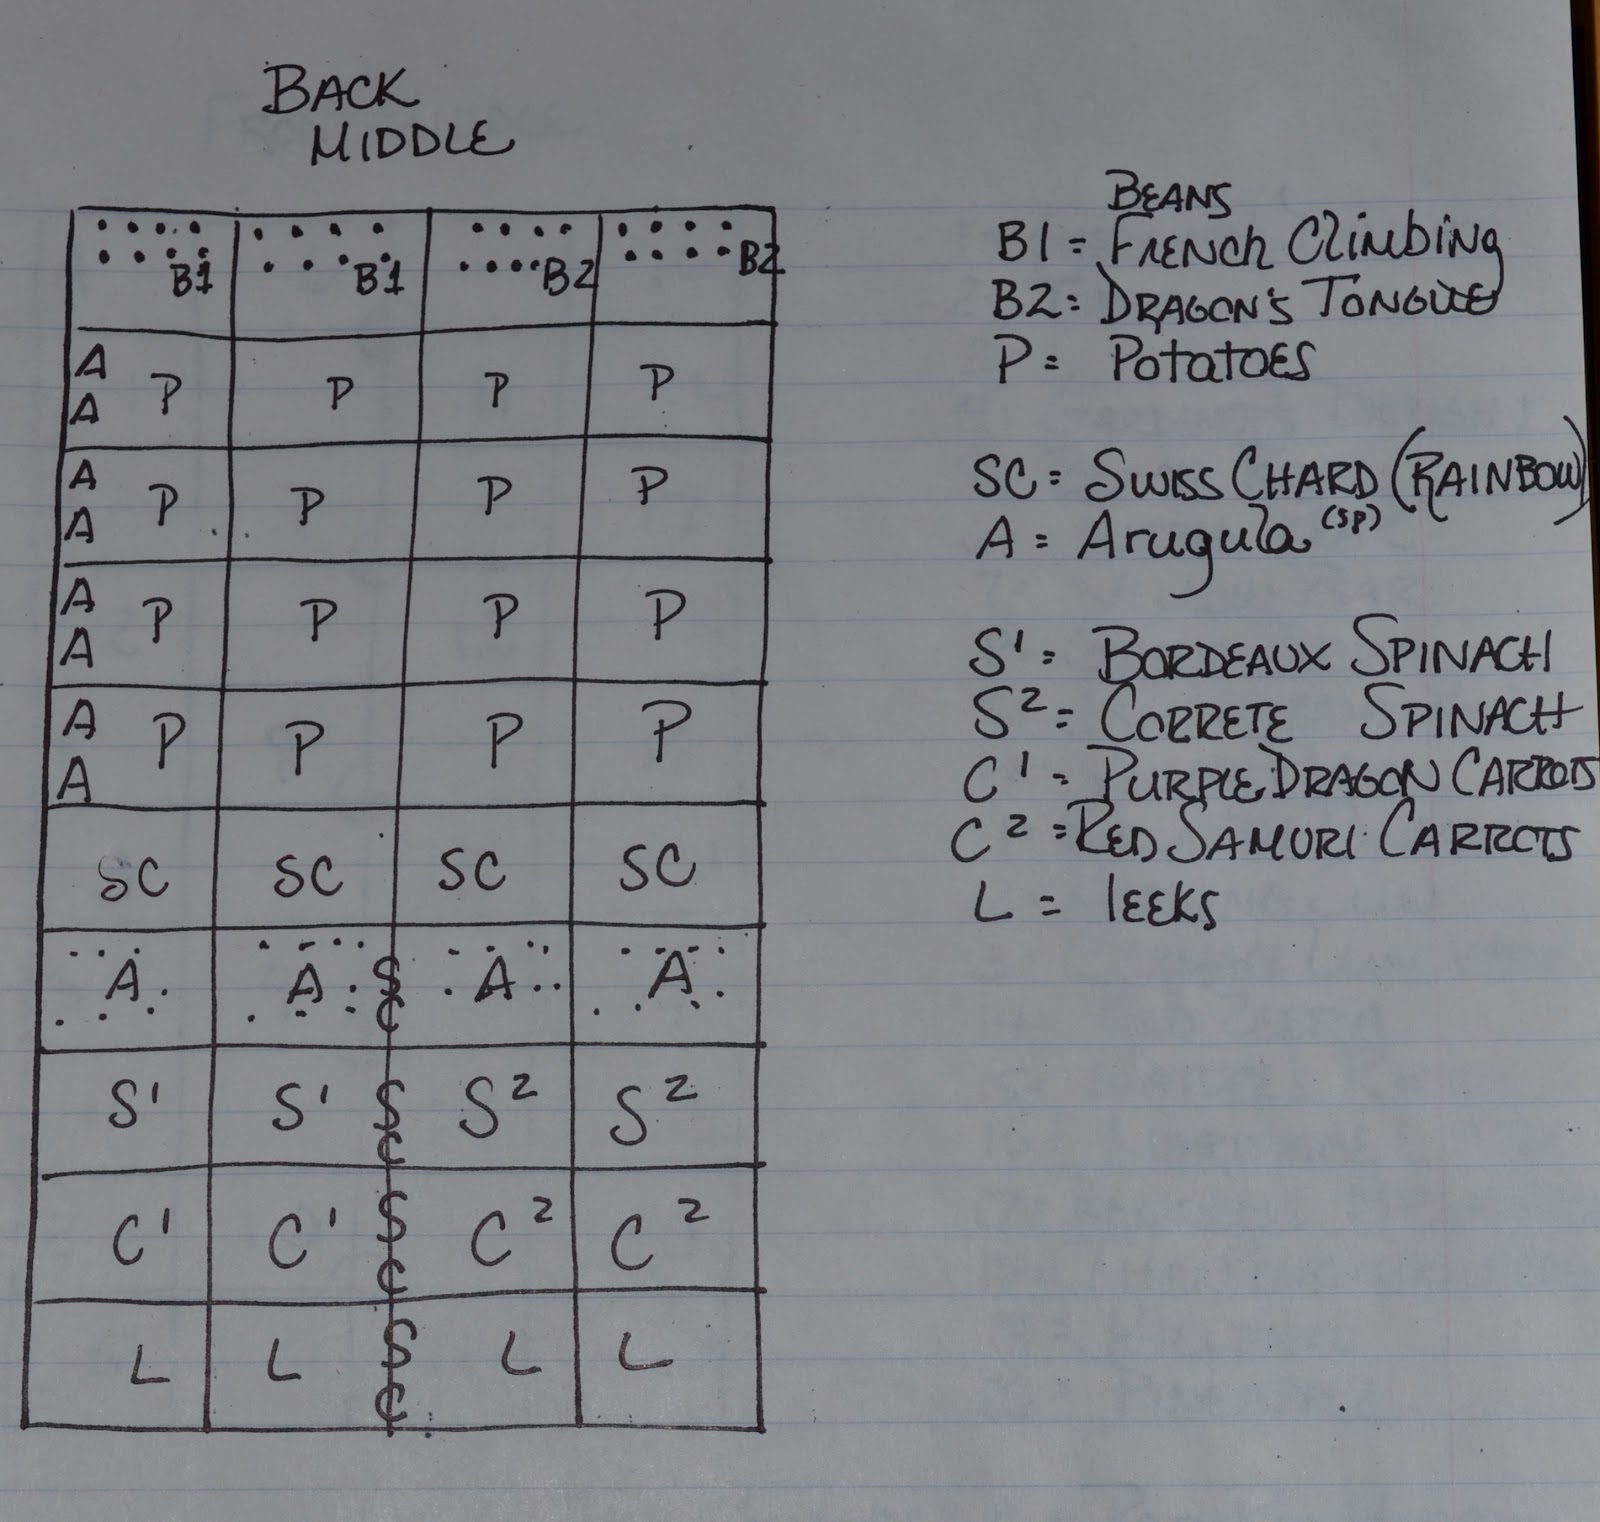 BACK
MIDDLE
B1 B1 B2 B2
A
P P P P
A
A
P P P P
A
A
P P P P
A
A
P P P P
A
SC SC SC SC
A A SC A A
S1 S1 SC S2 S2
C1 C1 SC C2 C2
L L SC L L
BEANS
B1 = FRENCH CLIMBING
B2 = DRAGON'S TONGUE
P = POTATOES
SC = SWISS CHARD (RAINBOW)
A = Arugula (SP)
S1 = BORDEAUX SPINACH
S2 = CORRETE SPINACH
C1 = PURPLE DRAGON CARROTS
C2 = RED SAMURI CARROTS
L = lEEKS